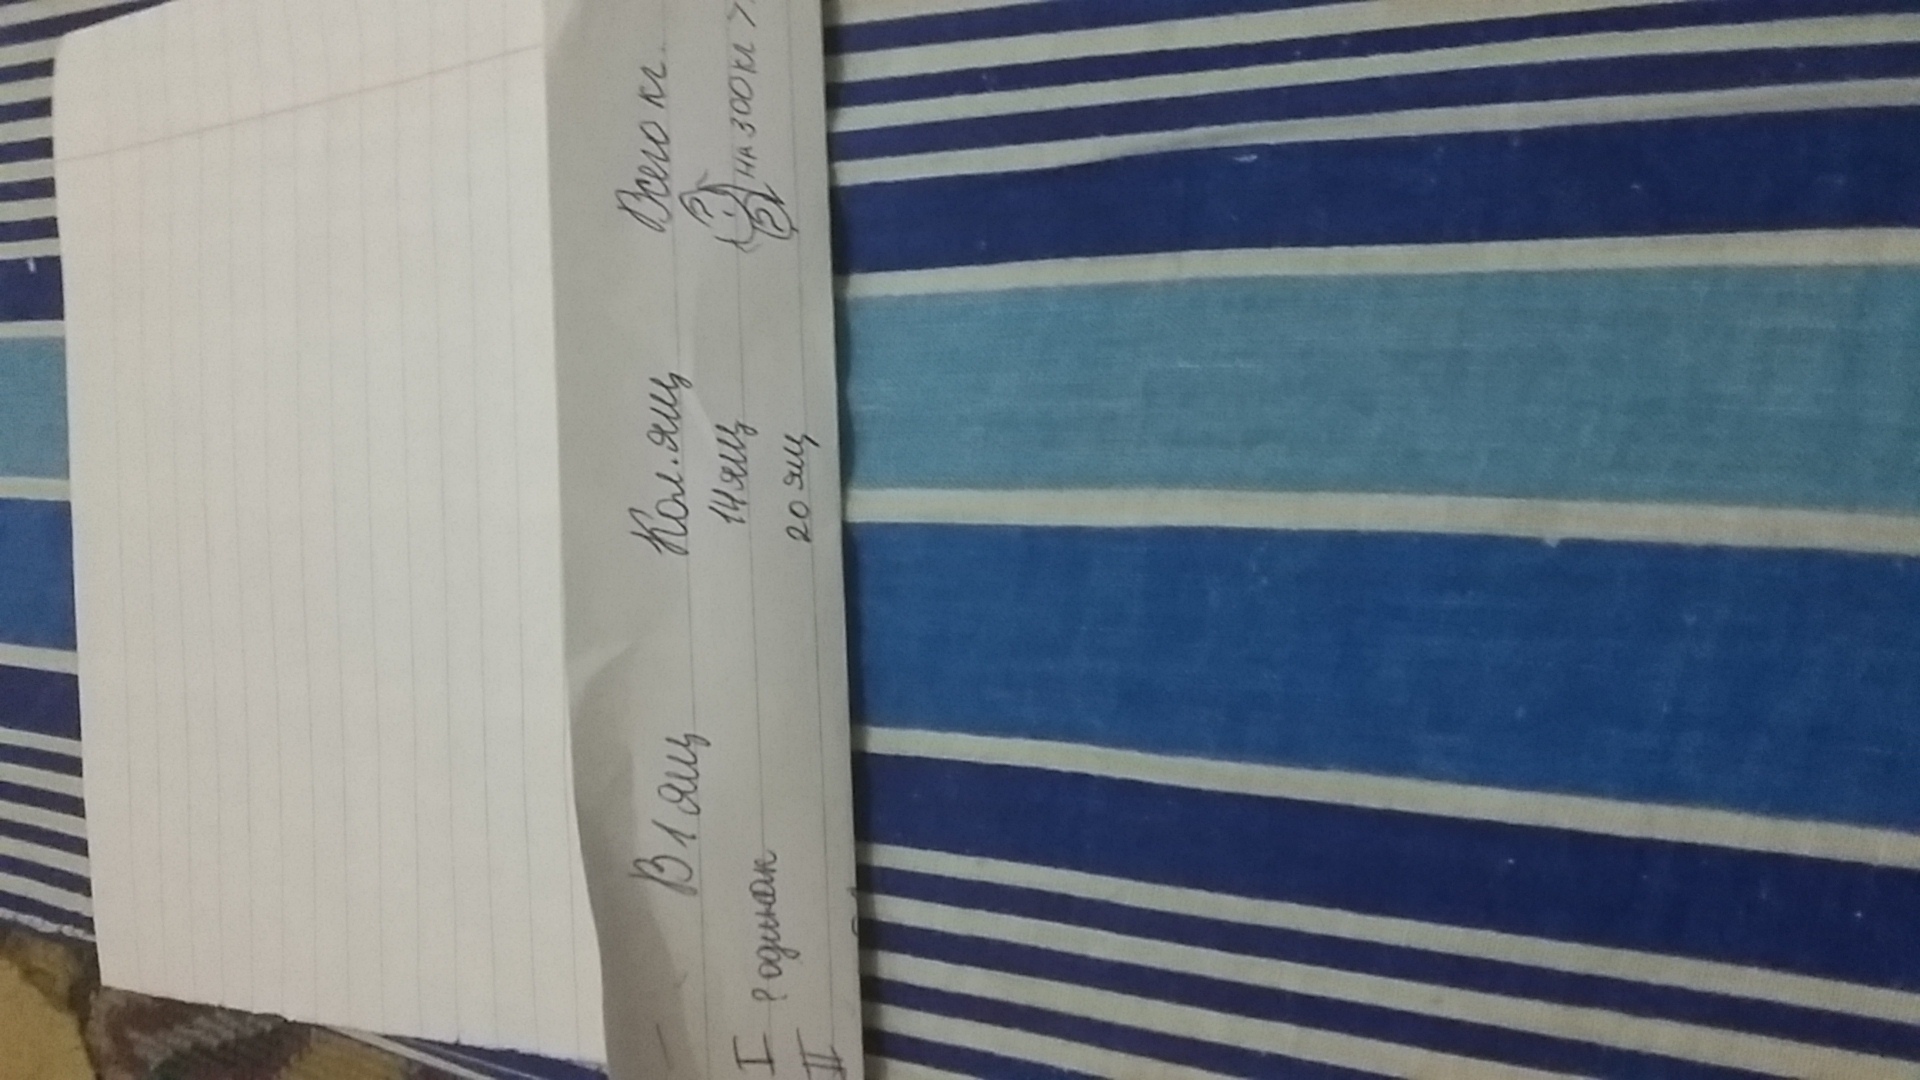 В 1 ящ Кол. ящ Всего кг.
I ? одинак 14 ящ ?
II 20 ящ ? на 300 кг >